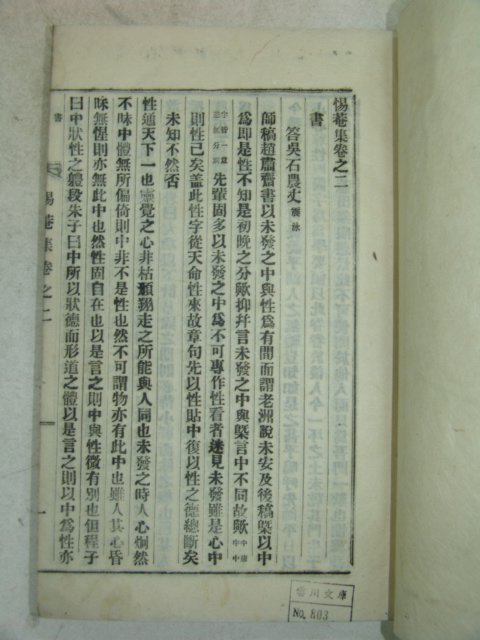 惕菴集卷之二
書
答吳石農丈 震泳
師稿趙肅齋書以未發之中與性爲有間而謂老洲說未安及後稿槩以中
爲卽是性不知是初晚之分歟抑幷言未發之中與槩言中不同故歟 中庸中
字皆一章 先輩固多以未發之中爲不可專作性看者迷見未發雖是心中
則性已矣盖此性字從天命性來故章句先以性貼中復以性之德總斷矣
未知不然否
性通天下一也靈覺之心非枯瀬翔走之所能與人同也未發之時人心烱然
不昧中體無所偏倚則中非不是性也然不可謂物亦有此中也雖人其心昏
昧無惺則亦無此中也然性固自在也以是言之則中與性微有別也但程子
曰中狀性之體段朱子曰中所以狀德而形道之體以是言則以中爲性亦
書
惕菴集卷之二
一
雲川文庫
No. 803